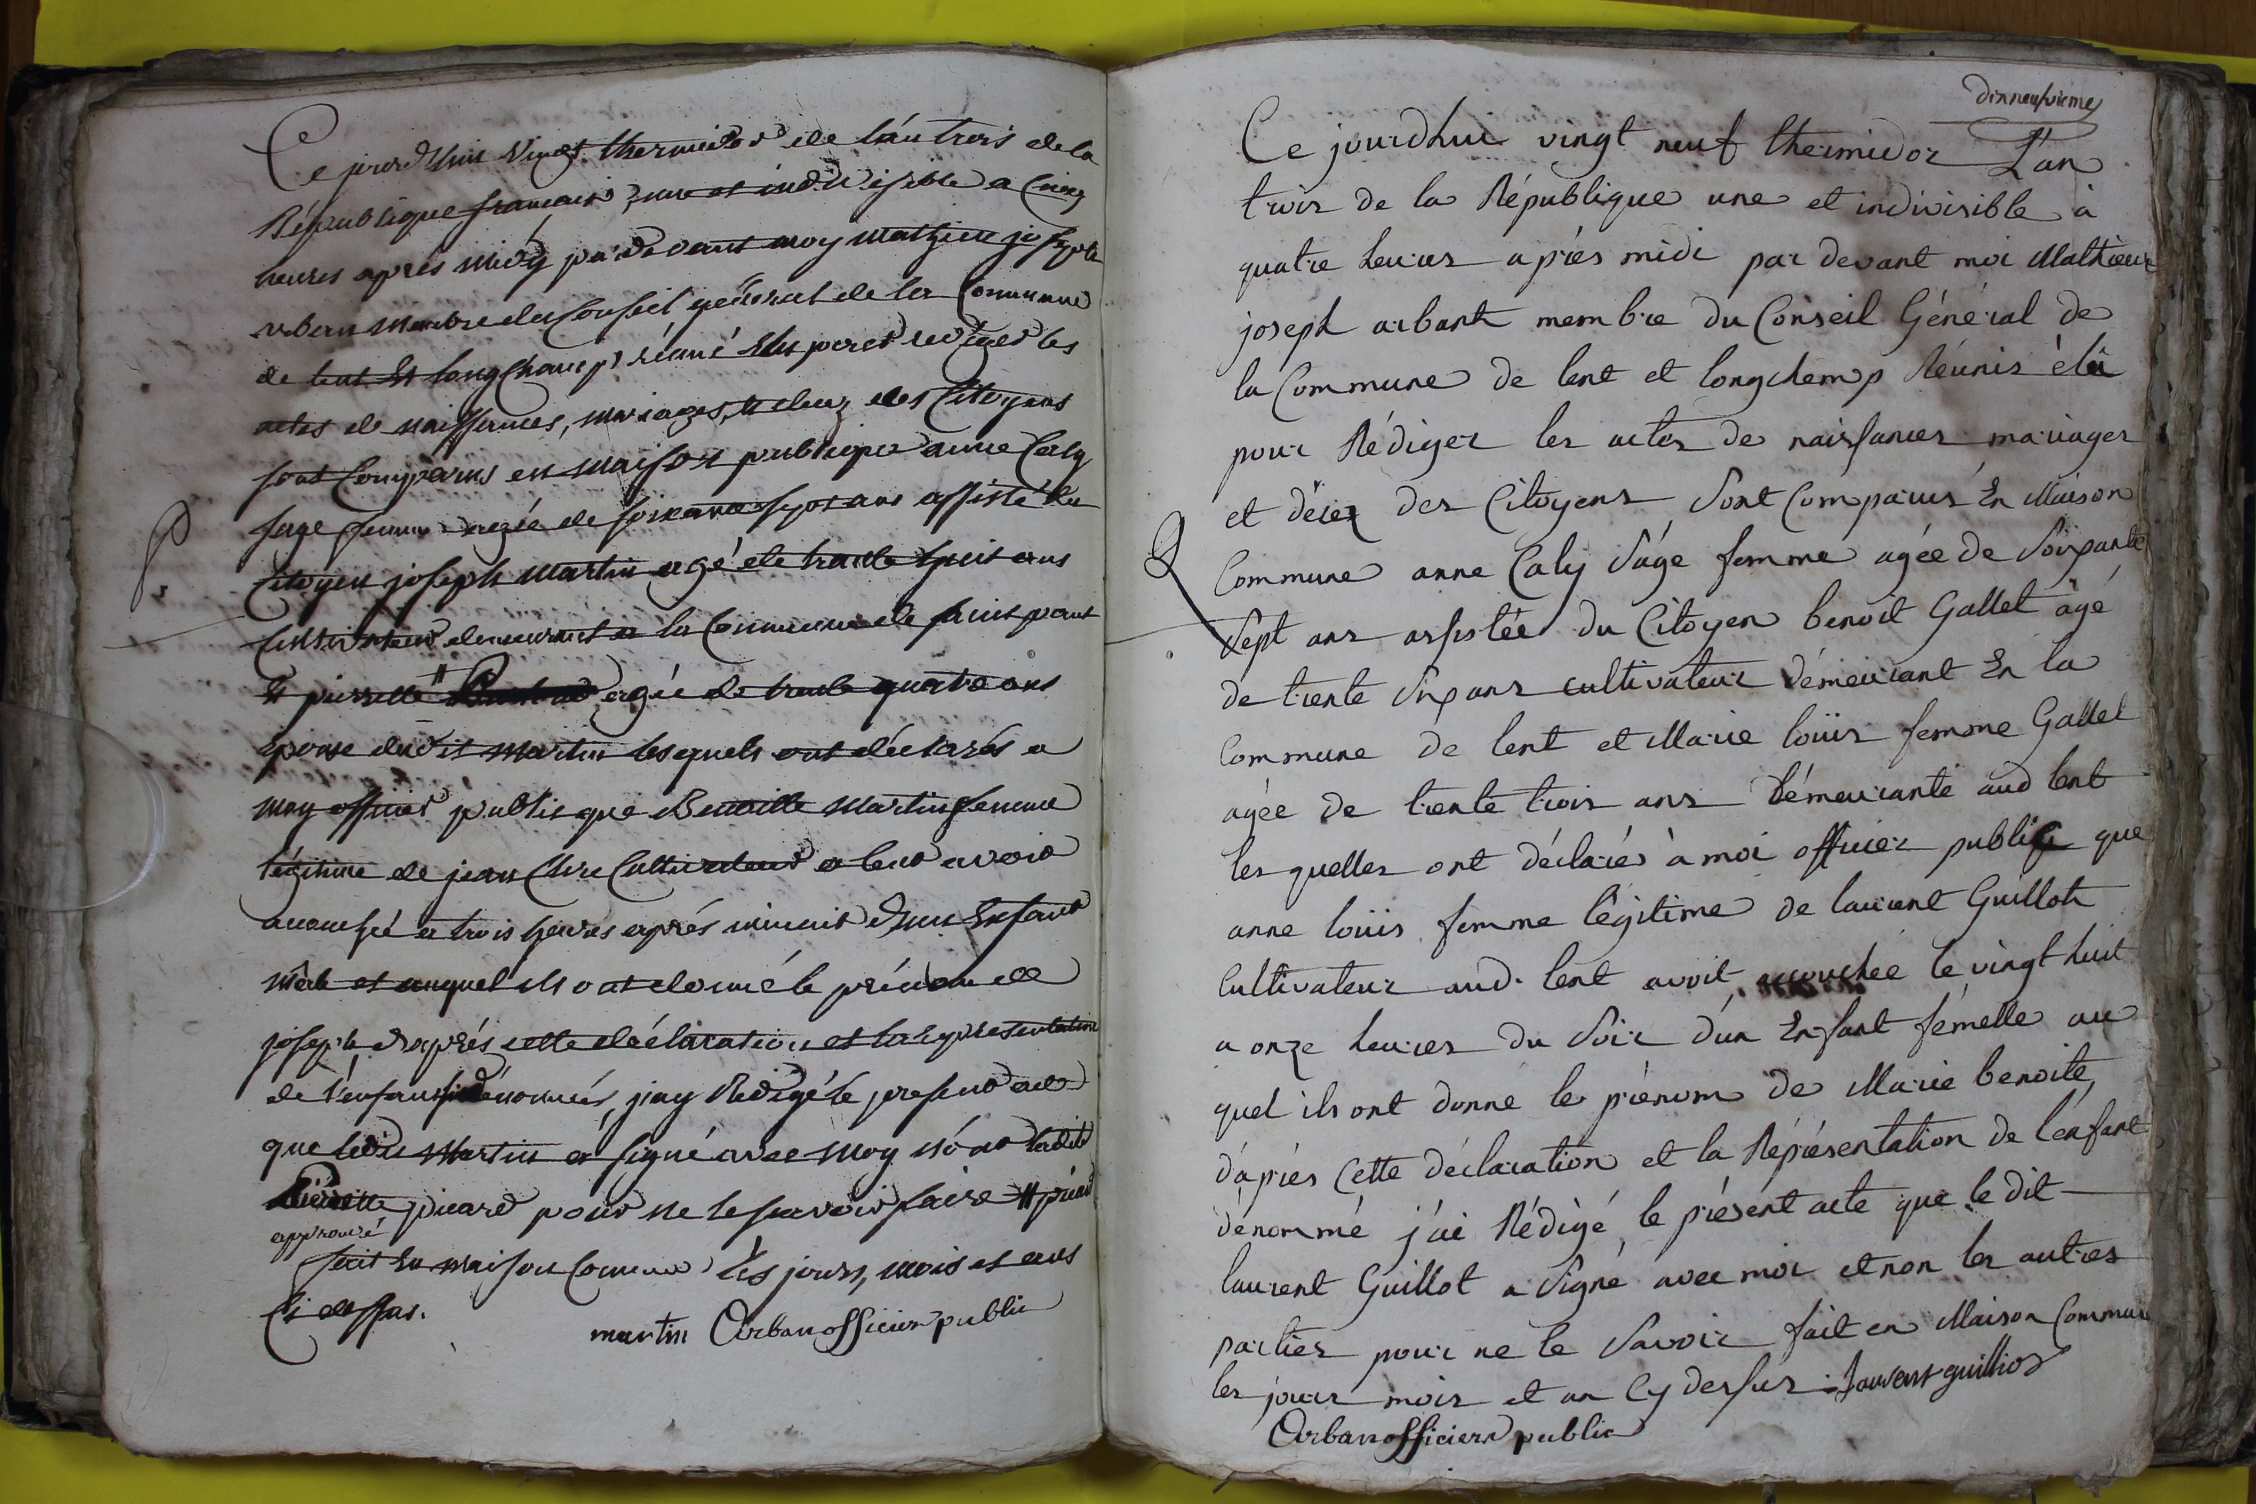 Ce jourd'hui vingt thermidor de l'an trois de la
République français, une et indivisible a Cinq
heures après midy par devant moy Mathieu joseph
arban membre du Conseil général de la Commune
de lent Et longchamp réuni élu pour rediger les
actes de naissances, mariages, & décez des Citoyens
sont Comparus en maison publique anne Caly
sage femme agée de soixante sept ans assisté du
Citoyen joseph martin agé de trante huit ans
Cultivateur demeurant a la Commune de saint paul
Et pierrette # agée de trente quatre ans
épouse dudit martin lesquels ont déclarés a
moy officier public que Benoitte martin femme
légitime de jean Cultivateur a lent avoir
accouché a trois heures aprés minuit d'un Enfant
mâle et auquel ils ont donné le prénom de
joseph d'aprés cette déclaration et la représentation
de l'enfant dénommés, j'ay Redigé le present acte
que ledit Martin a signé avec moy nôn ladite
Pierrette picard pour ne le savoir faire # picard
approuvé
fait En maison Commune les jours, mois et ans
Ci dessus.
martin Arban officier public
dixneufvieme
Ce jourdhui vingt neuf thermidor L'an
trois de la République une et indivisible à
quatre heures après midi par devant moi Mathieu
joseph arbant membre du Conseil Général de
la Commune de lent et longchamp Réunis élû
pour Rédiger les actes de naissances mariages
et décez des Citoyens Sont Comparus En Maison
Commune anne Caly Sage femme agée de Soixante
Sept ans assistée du Citoyen benoit Gallet âgé
de trente Six ans cultivateur démeurant En la
Commune de lent et Marie loüis femme Gallet
agée de trente trois ans démeurante aud lent
les quelles ont déclaré à moi officier public que
anne loüis femme légitime de laurent Guillot
Cultivateur aud. lent avoit accouchée le vingt huit
a onze heures du Soir d'un Enfant fémelle au
quel ils ont donné le prénom de Marie benoite,
d'après Cette déclaration et la Réprésentation de l'enfant
dénommé j'ai Rédigé le présent acte que le dit
laurent Guillot a Signé avec moi et non les autres
parties pour ne le Savoir fait en Maison Commune
les jours mois et an Cy dessus. Lauvent guilliod
Arban officier public